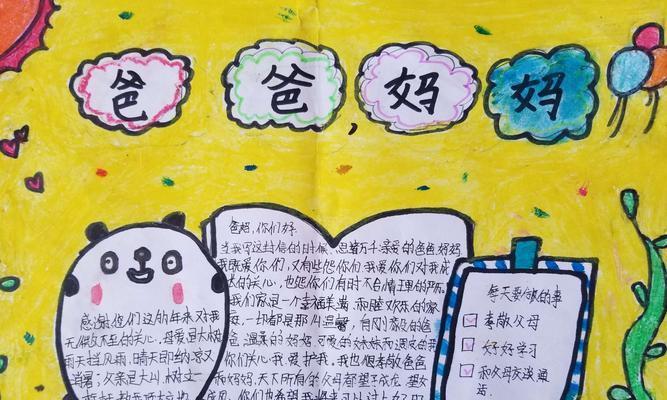 爸爸，妈妈
爸妈，你们好：
当我写这封信的时候，思绪万千，亲爱的爸爸，妈妈
我既爱你们，又有些怨你们，我爱你们对我
的关心，也怨你们有时不合情理的严厉
我们家是一个幸福美满，和睦欢乐的家
庭，一切都是那么温馨，有风趣的爸
爸，温柔的妈妈，可爱的妹妹
你们关心我，爱护我，我也很孝敬爸爸
和妈妈，天下所有的父母都望子成龙，望女
成凤，你们也希望我
感谢你们这的年来对我
无微不至的关心，母爱是大树
雨天挡风雨，晴天即纳凉又
消暑；父亲是大山，
每天要做的事
孝敬父母
好好学习
和父母交谈通
话。